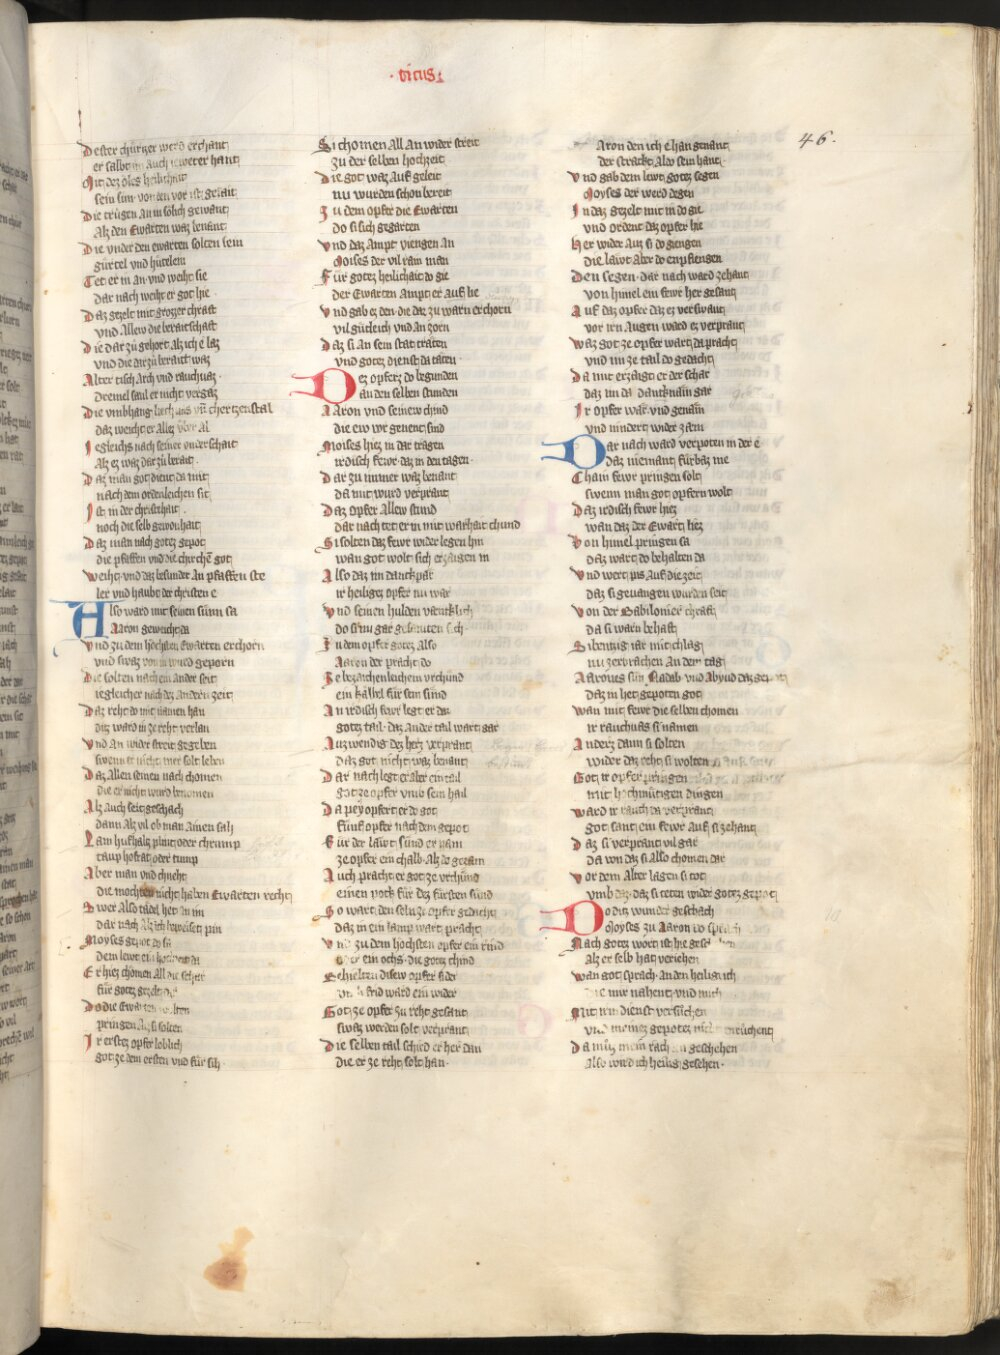 ·vicus·
46.
Dester chürtzer werd erchant
er salbt in auch iewerer hant
Mit dez öles heilichait
sein sün von den vor ist gesait
Die trügen An in sölich gewant
Alz den Ewarten waz benant
Die vnder den ewarten solten sein
gürtel vnd hütelein
Tet er in An vnd weiht sie
dar nach weiht er got hie
Daz gezelt mit grozzer chraft
vnd Allew die beraitschaft
Die dar zü gehort Alz ich ê laz
vnd die dar zü berait waz
Alter tisch Arch vnd rauchuaz
Dreinel saul er nicht vergaz
Die vmbhang chertzenstal
daz weicht er Allez vber Al
Iegleichs nach seiner ordnschaut
Alz ez waz dar zü berait
Daz man got dient da mit
nach dem ordenleichen sit
Ist in der christnhait
noch die selb gewonhait
Daz man nach gotez gepot
die pfaffen vnd die chirchē got
Weiht vnd daz besunder An pfaffen ste
ler vnd haubt der christen e
Also ward mit seinen sünn sa
Aaron geweicht da
Vnd zu dem höchsten Ewarten erchorn
vnd swaz von im wurd geporn
Die solten nach ein ander seit
iegleicher nach dez Andern zeit
Daz reht do mit namen han
ditz ward in ze reht verlan
Vnd An wider streit gegeben
swenn er nicht mer solt leben
Daz Allen seinen nach chomen
die er nicht würd benomen
Alz Auch seit geschach
dann Alz vil ob man Ainen sah
Lam hufhalz plint oder chrump
taup hofrat oder tump
Aber man vnd chneht
die mochten nicht haben Ewarten recht
Swer Also tadel het An im
dar nach Alz ich beweiset pin
Moyses gepot do sa
dem lewt ein hochzeit da
Er hiez chomen All die schar
für gotz gezelt
Do die Ewarten solten
pringen Alz si solten
Ir erstez opfer loblich
got ze dem ersten vnd für sih
Si chomen All An wider streit
zu der selben hochzeit
Die got waz Auf geleit
nu wurden schon bereit
Zu dem opfer die Ewarten
do si sich gegarten
Vnd daz Ampt viengen An
Moises der vil rain man
Für gotez heilichait do gie
der Ewarten Ampt er Auf lie
Vnd gab ez den die daz zu warn erchorn
vil gütleich vnd An zorn
Daz si An sein stat traten
vnd gotez dienst da taten
Dez opferz do begunden
an den selben stunden
Aaron vnd seinew chind
die ew vor genent sind
Moises hiez in dar tragen
irdisch fewr daz in den tagen
Dar zu nimer waz benant
da mit wurd verprant
Daz opfer Allew stund
dar nach tet er in mit warhait chund
Si solten daz fewr wider legen hin
wan got wolt sich erzaigen in
Also daz im danchpär
ir heiligez opfer nu wär
Vnd seinen hulden
do si nu gar
In dem opfer gotez Also
Aaron der pracht do
Ze bezaichenleichem vrchünd
ein kalbel für sein sünd
An irdisch fewr legt er daz
gotez tail daz Ander tail wart gar
Auzwendig dez herz verprant
daz got nicht waz benant
Dar nach legt er aber ein tail
got ze opfer vmb sein hail
Da pey opfert er do got
fünf opfer nach dem gepot
Für der läwt sünd er nam
ze opfer ein chalb Alz do gezam
Auch pracht er got ze vrchünd
einen pock für dez fürsten sünd
So wart den selu ze opfer gedacht
daz in ein lamp wart pracht
Vnd zu dem höchsten opfer ein rind
oder ein ochs die gotez chind
Behielten disew opfer sider
vnd frid ward ein wider
Got ze opfer zu reht gesant
swaz werden solt verprant
Die selben tail schied er her dan
die er ze reht solt han
Aron den ich ê han genant
der strackt Also sein hant
Vnd gab dem lewt gotez segen
Moyses der werd degen
In daz gezelt mit in do gie
vnd ordent daz opfer hie
Her wider Auz si do giengen
die läwt Aber do enpfiengen
Den segen dar nach ward zehant
von himel ein fewr her gesant
Auf daz opfer daz ez verswant
vor irn Augen ward ez verprant
Waz got ze opfer wart da pracht
vnd im ze tail do gedacht
Da mit erzaigt er der schar
daz im da danchnäm gar
Ir opfer wär vnd genäm
vnd nindert wider zäm
Dar nach ward verpoten in der ê
daz niemant fürbaz me
Chain fewr pringen solt
swenn man got opfern wolt
Daz irdisch fewr hiez
wan daz der Ewart liez
Von himel pringen sa
daz wart do behalten da
Vnd wert pis Auf die zeit
daz si geuangen wurden seit
Von der Babilonier chraft
da si warn behaft
Sibentzig iar mit chlag
nu zerprachen An dem tag
Aarons sün Nadab vnd Abyud daz gepot
daz in het gepoten got
Wan mit fewr die selben chomen
ir rauchuas si namen
Anderz dann si solten
wider daz reht si wolten
Got ir opfer pringen
mit hochmütigen dingen
Ward ir rauch da verprant
got sant ein fewr Auf si zehant
Daz si verprant vil gar
da von daz si Also chomen dar
Vor dem Alter lagen si tot
vmb daz daz si teten wider gotez gepot
Do ditz wunder geschach
Moyses zu Aaron do sprach
Nach gotez wort ist hie
Alz er selb hat veriehen
Wan got sprach An den heilig ich
die mir nahent vnd
Mit irn dienst versüchen
vnd meinez gepotez nicht enrüchent
Da müz mein rach an geschehen
Also wird ich heilig gesehen